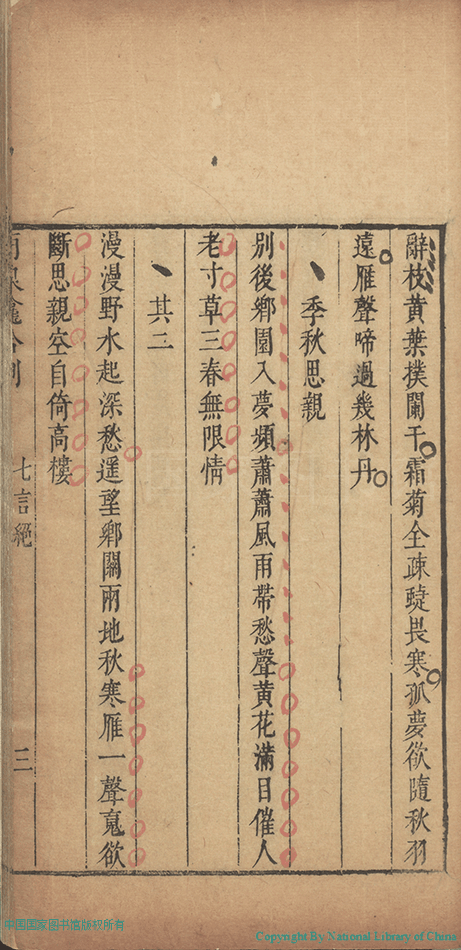 辭枝黃葉撲闌干霜菊全疎蝶畏寒孤夢欲隨秋羽
遠雁聲啼過幾林丹
季秋思親
別後鄉園入夢頻蕭蕭風雨帶愁聲黃花滿目催人
老寸草三春無限情
其二
漫漫野水起深愁遥望鄉關兩地秋寒雁一聲䰟欲
斷思親空自倚高樓
七言絕
三
中国国家图书馆版权所有
Copyright By National Library of China